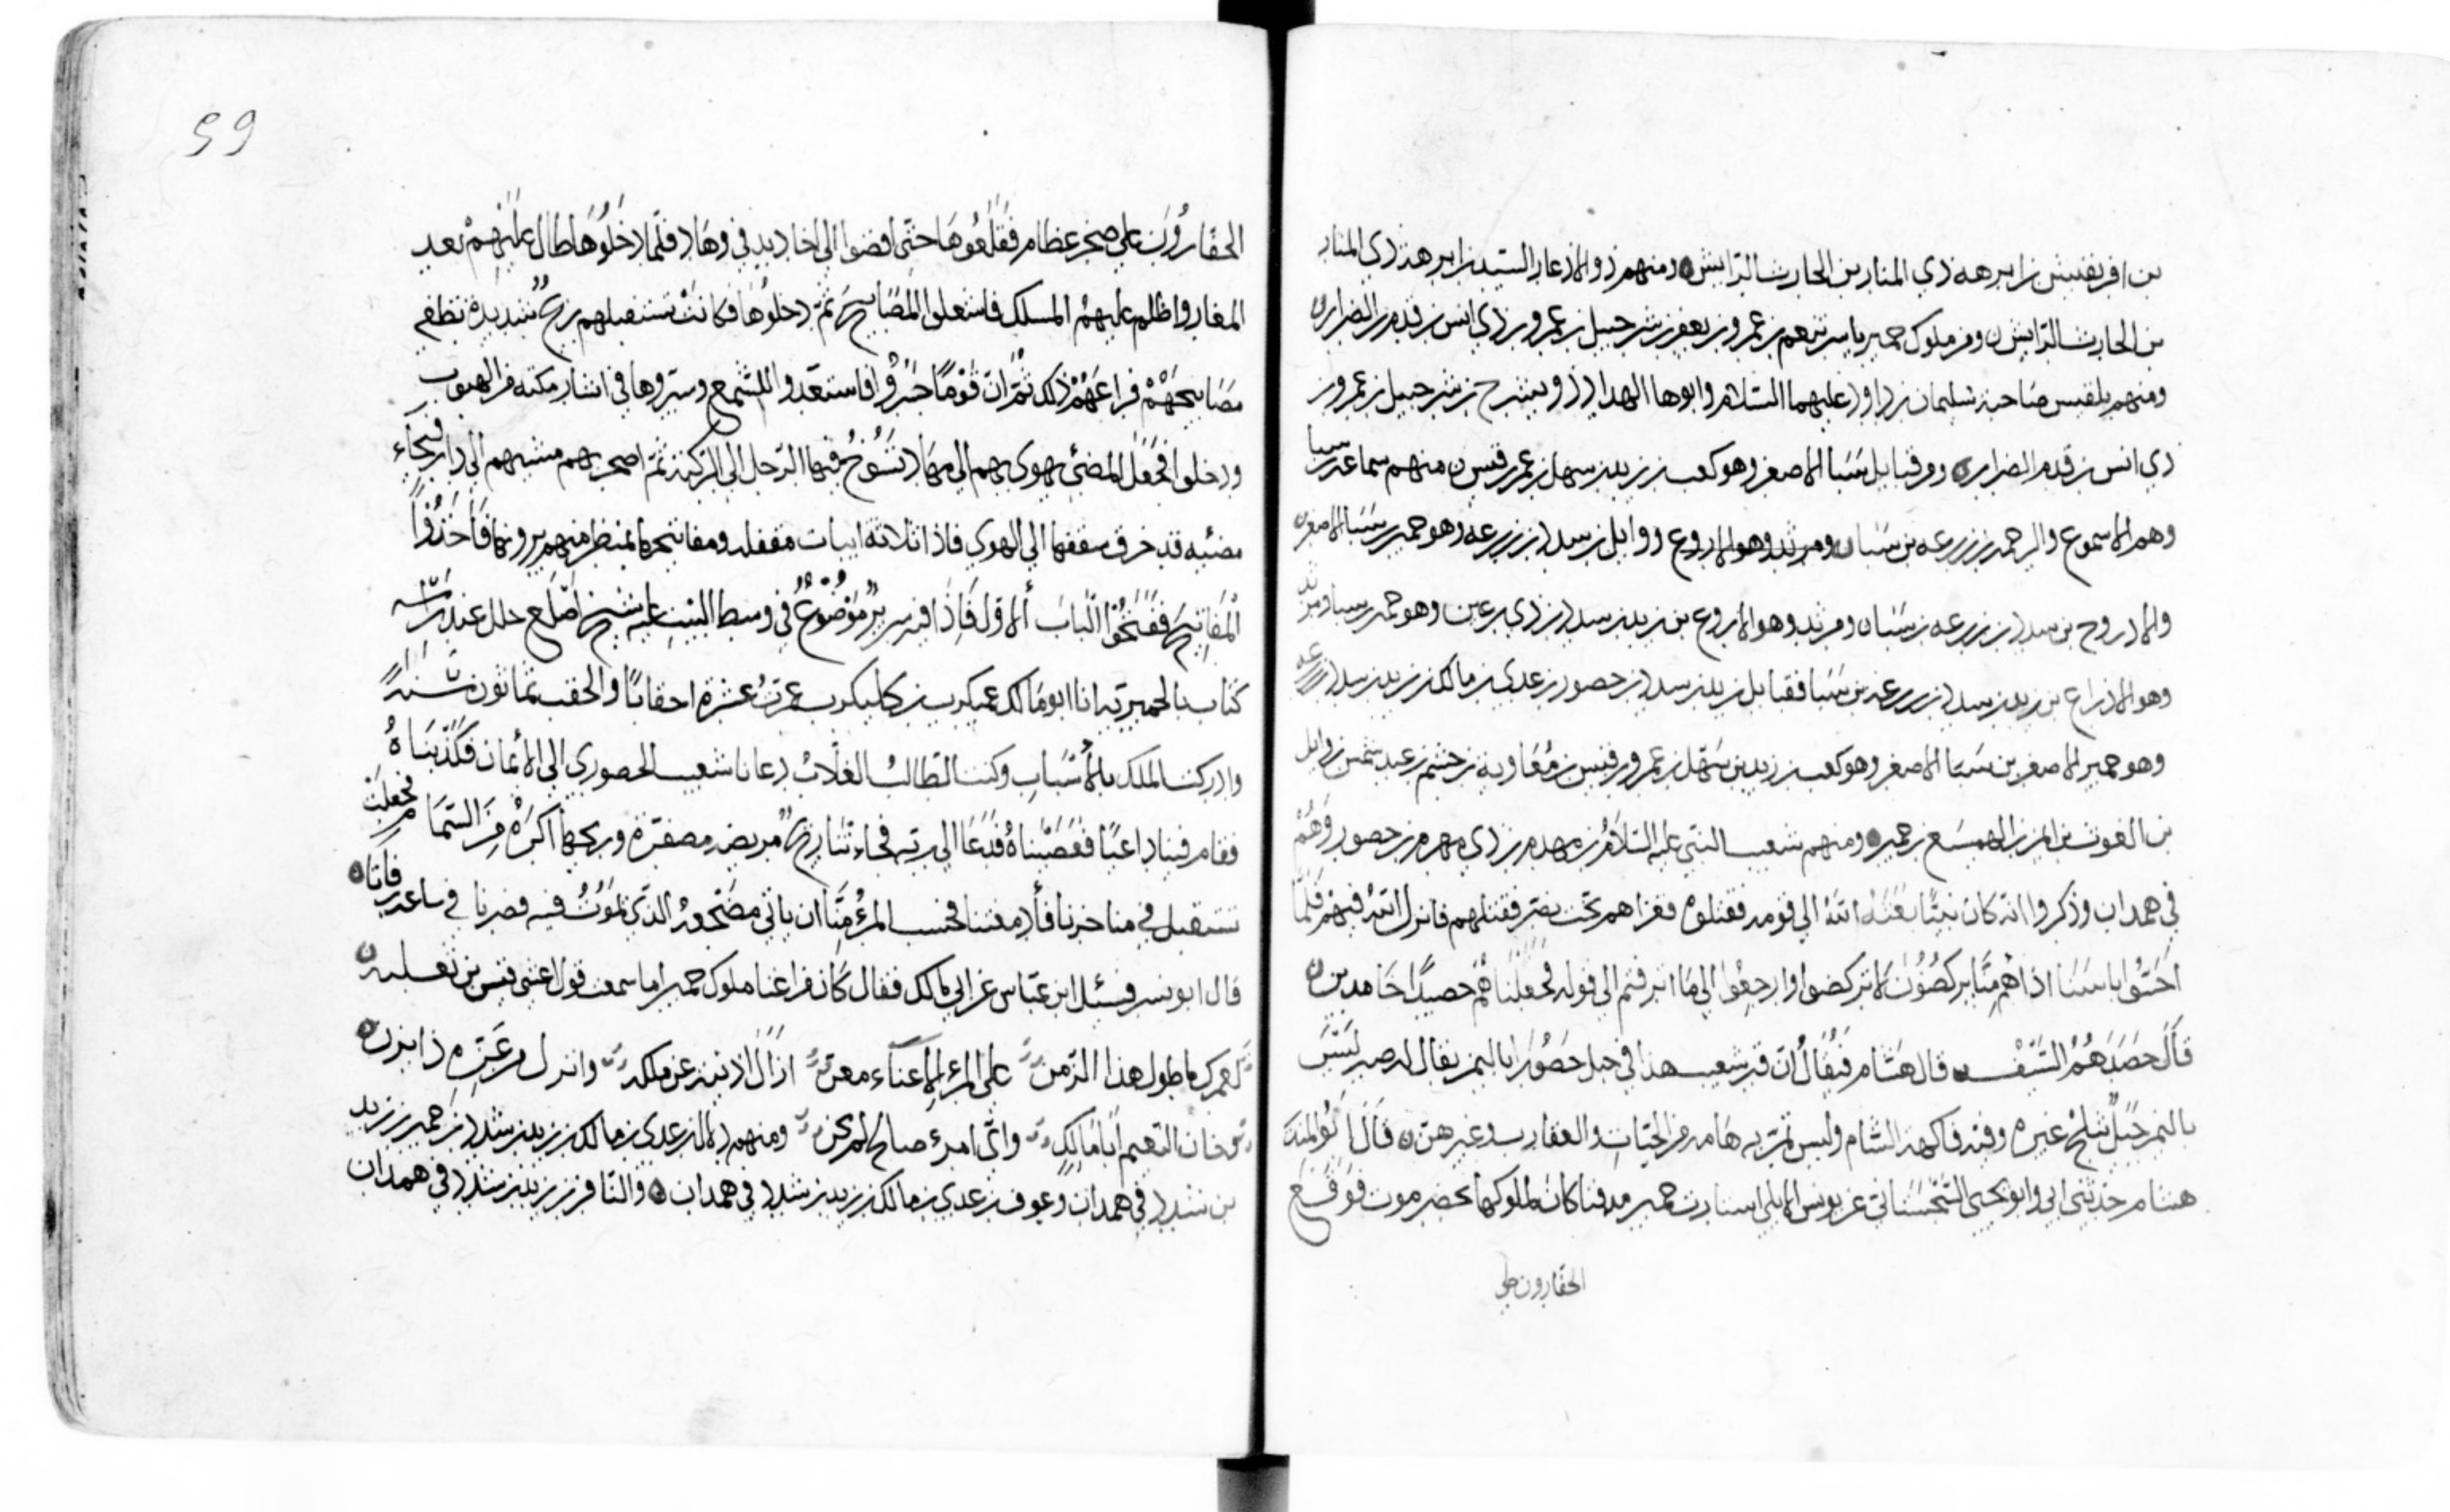 بن افريقيش بن ابرهه ذي المنار بن الحارث الرايش ومنهم ذو الاذعار السيد بن ابرهة ذي المنار
بن الحارث الرايش ومن ملوك حمير ياسر ينعم بن عمرو بن يعفر بن شرحبيل بن عمرو بن ذي انس بن قدم بن الضرار
ومنهم بلقيس صاحبة سليمان بن داود عليهما السلام وابوها الهداد ذو يشرح بن شرحبيل بن عمرو بن
ذي انس بن قدم الضرار ومن قبايل سبا الاصغر وهو كعب بن زيد بن سهل بن عمر بن قيس منهم
وهم الاسموع والرحمة بن زرعه بن سبا ومرثد وهو الاروع ووايل بن سدد بن زرعه وهو حمير بن سبا الاصغر
والادروح بن سدد بن زرعه بن سبا ومرثد وهو الاروع بن زيد بن سدد بن ذي رعين وهو حمير بن سبا ومرثد
وهو الاذراع بن زيد بن سدد بن زرعة بن سبا فقبايل زيد بن سدد بن حصور بن عدي بن مالك بن زيد بن سدد بن زرعه
وهو حمير الاصغر بن سبا الاصغر وهو كعب بن زيد بن سهل بن عمرو بن قيس بن معاوية بن جشم بن عبد شمس بن وايل
بن الغوث بن ايمن بن الهميسع بن حمير ومنهم شعيب النبي عليه السلام بن مهدم بن ذي مهرم بن حصور وهم
في همدان وذكروا انه كان نبيا بعثه الله الى قومه فقتلوه فغزاهم بخت نصر فقتلهم فانزل الله فيهم فلما
احسوا باسنا اذا هم منها يركضون لا تركضوا وارجعوا الى ما اترفتم الى قوله فجعلناهم حصيدا خامدين
قال حصدهم السيف قال هشام فيقال ان قبر شعيب هذا في جبل حصور باليمن يقال له صبر ليس
باليمن جبل يثلج غيره وفيه فاكهة الشام وليس تمر به هامة من الحيات والعقارب وغيرهن قال ابو المنذر
هشام حدثني ابي وابو يحيى السختياني عن يونس الايلي استارت حمير مدفنا كان لملوكها بحضرموت فوقع
الحفارون على
59
الحفارون على صخر عظام فقلعوها حتى افضوا الى اخاديد في وهاد فلما دخلوها طال عليهم بعد
المغار واظلم عليهم المسلك فاشعلوا المصابيح ثم دخلوها فكانت تستقبلهم ريح شديدة تطفي
مصابيحهم فراعهم ذلك ثم ان قوما جسروا فاستعدوا للشمع وستروها في من الهبوب
ودخلوا فجعل المضئ يهوى بهم الى مهاد تسوخ فيها الرجل الى الركبة ثم اصحر بهم مشيهم الى دار فيحاء
مضيئه قد خرق سقفها الى الهوي فاذا ثلاثة ابيات مقفلة ومفاتيحها بمنظر منهم يرونها فاخذوا
المفاتيح ففتحوا الباب الاول فاذا فيه سرير موضوع في وسط البيت عليه شيخ اصلع عند راسه
كتاب بالحميرية انا ابو مالك عميكرب بن كليكرب عمرت عشرة احقابا والحقب ثمانون سنة
وادركت الملك بالاسباب وكنت الطالب الغلاب دعانا شعيب الحصوري الى الايمان فكذبناه
فقام فينا داعيا فعصيناه فدعا الى ربه فجاءتنا ريح مريض مصفرة وريحها اكره من السما فجعلت
تستقبل في مناخرنا فأدمغتنا فحسب المرء منا ان ياتي مضجعه الذي يموت فيه فصرنا في ساعة رفاتا
قال ابو بسر فسئل ابن عباس عن ابي مالك فقال كان من اغنا ملوك حمير اما سمعت قول اعشى قيس بن ثعلبة
لعمرك ما طول هذا الزمن على المرء الا عناء معن ازال اذينة عن ملكه وانزل من عزه ذا يزن
وخان النعيم ابا مالك واي امرئ صالح لم يخن ومنهم دالان بن عدي بن مالك بن زيد بن شدد بن حمير بن زيد
بن شدد في همدان وعوف بن عدي بن مالك بن زيد بن شدد في همدان والنافر بن زيد بن شدد في همدان